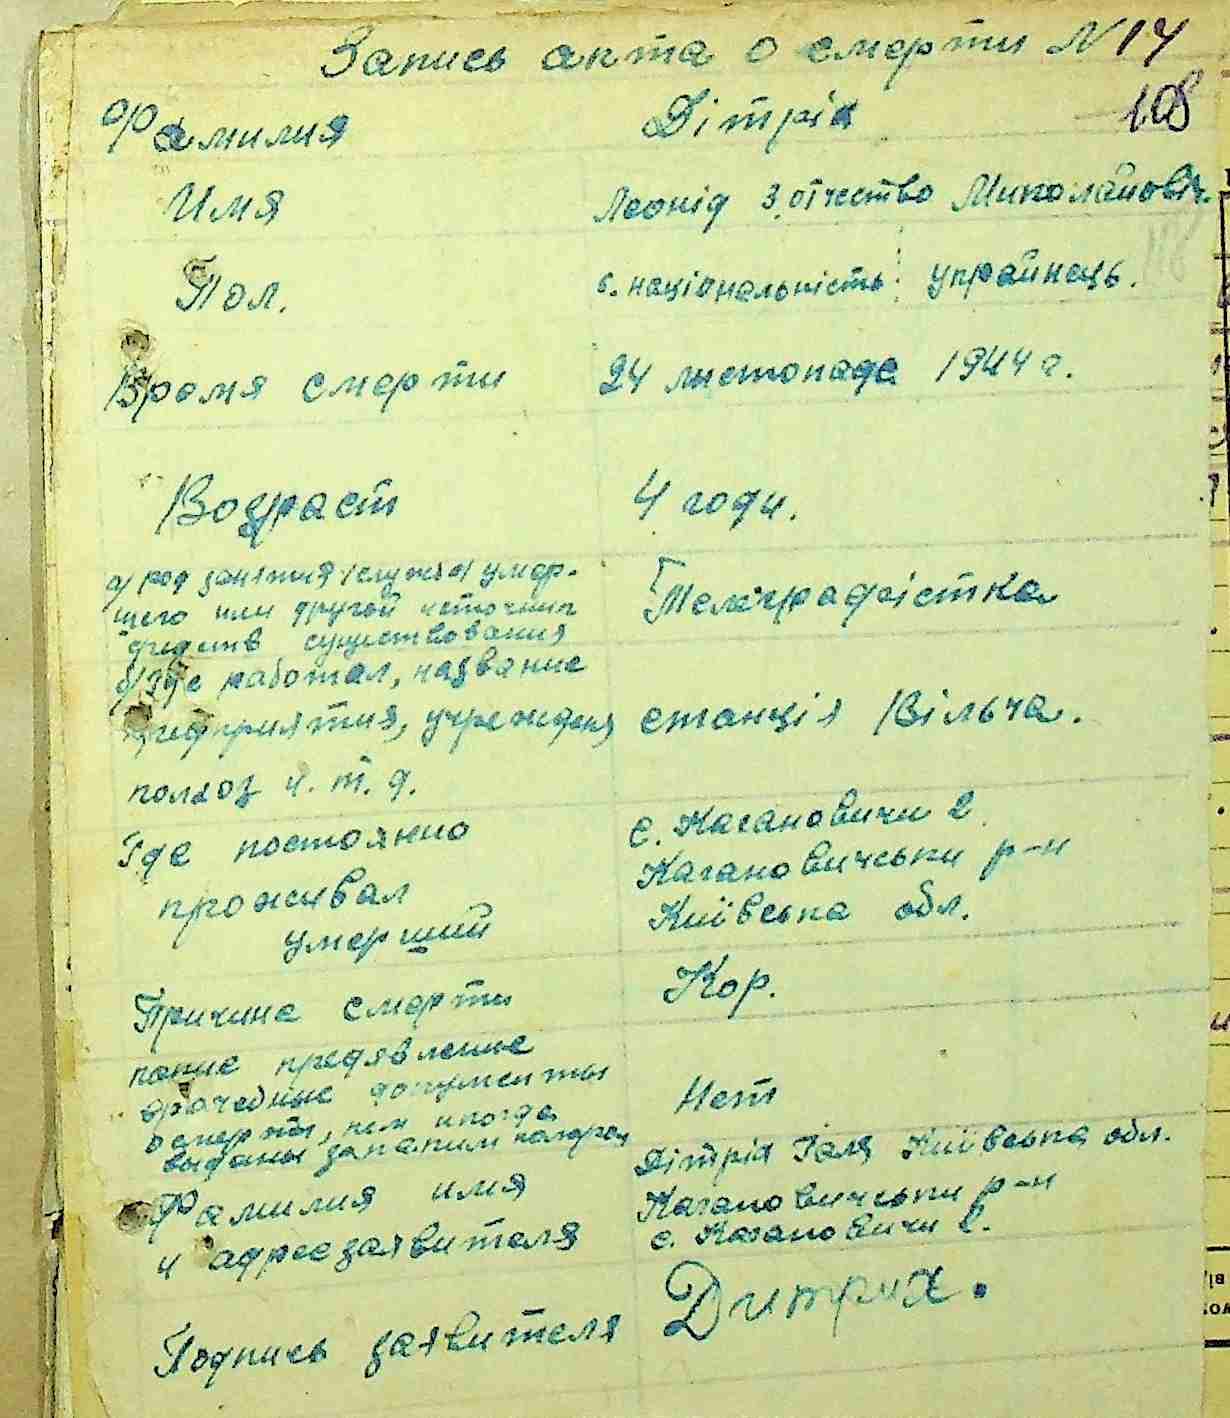 Запись акта о смерти N 14
108
Фамилия Дітріх
Имя Леонід 3. отчество Миколайовіч.
Пол. 6. національність: українець.
Время смерти 24 листопада 1944 г.
Возраст 4 годи.
а) род занятия (служба) умер-
шего или другой источник
средств существования Телеграфістка
б) где работал, название
предприятия, учреждения станція Вільча.
колхоз и. т. д.
Где постоянно с. Кагановичи 2.
проживал Кагановичськи р-н
умерший Київська обл.
Причина смерти Кор.
какие предявление
врачебные документы Нет
о смерти, кем и когда
выданы за каким номером
Фамилия имя Дітріх Галя Київська обл.
и адрес заявителя Кагановичськи р-н
с. Кагановичи 2.
Подпись заявителя Дитрих.